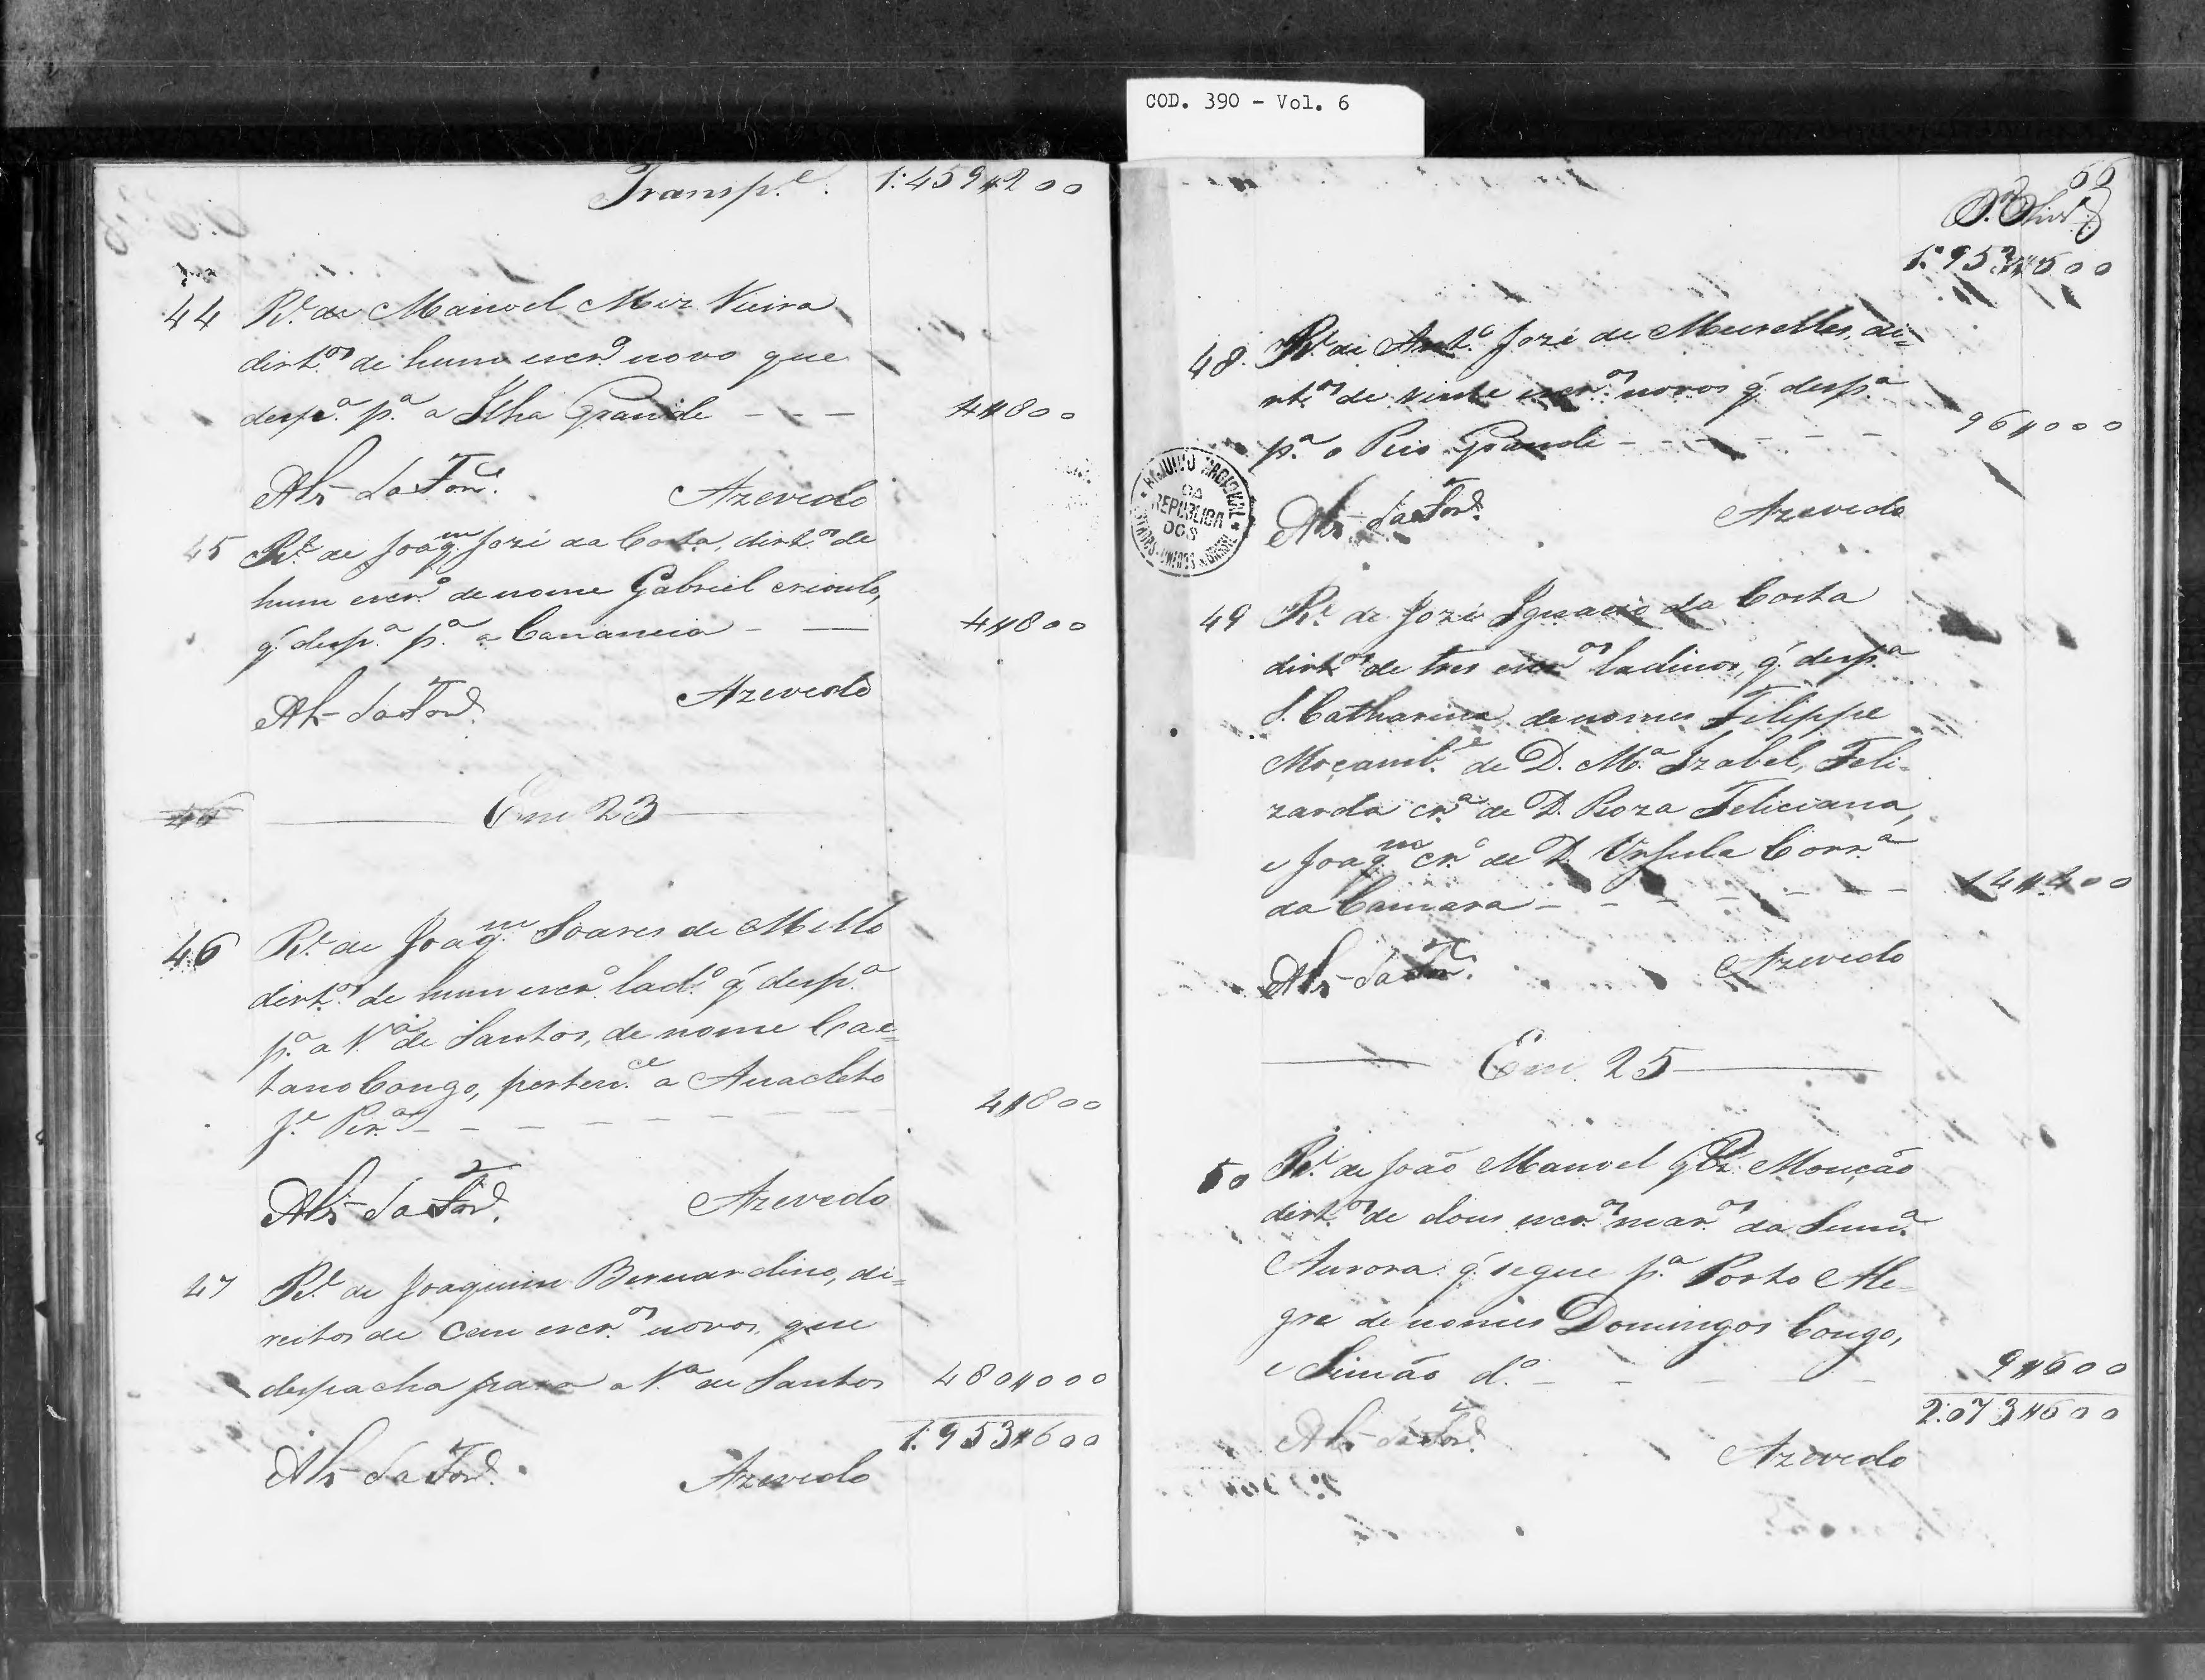 COD. 390 - Vol. 6
Transp.e 1:459$200
44 R.e de Manoel Miz Vieira
dirt.os de hum escr.o novo que
desp.a p.a a Ilha Grande - - - 4$800
Azevedo
45 R.e de Joaq.m Jozé da Costa, dirt.os de
hum escr.o de nome Gabriel crioulo,
q' desp.a p.a a Cananeia - — 4$800
Azevedo
46
Em 23
46 R.e de Joaq.m Soares de Mello
dirt.os de hum escr.o lad.o q' desp.a
p.a a V.a de Santos, de nome Cae=
tano Congo, perten.ce a Anacleto
J.e Per.a - - - - - 4$800
Azevedo
47 R.e de Joaquim Bernardino, di=
reitos de cem escr.os novos, que
despacha para a V.a de Santos 480$000
1:953$600
Azevedo
66
1:953$600
48. R.e de Ant.o Jozé de Meirelles, di=
rt.os de vinte escr.os novos q' desp.a
p.a o Rio Grande - - - - - 96$000
Azevedo
ARQUIVO NACIONAL
DA
REPUBLICA
DOS
ESTADOS-UNIDOS BRASIL
49 R.e de Jozé Ignacio da Costa
dirt.os de tres escr.os ladinos, q' desp.a
S. Catharina, de nomes Filippe
Moçamb.e de D. M.a Izabel, Feli-
zarda cr.a de D. Roza Feliciana,
e Joaq.m cr.o de D. Ursula Corr.a
da Camara - - - - - - - 14$400
Azevedo
Em 25
50 R.e de João Manoel Glz Monção
dirt.os de dous escr.os mar.os da Sum.a
Aurora q' segue p.a Porto Ale-
gre de nomes Domingos Congo,
e Simão d.o - - - - - 9$600
2:073$600
Azevedo